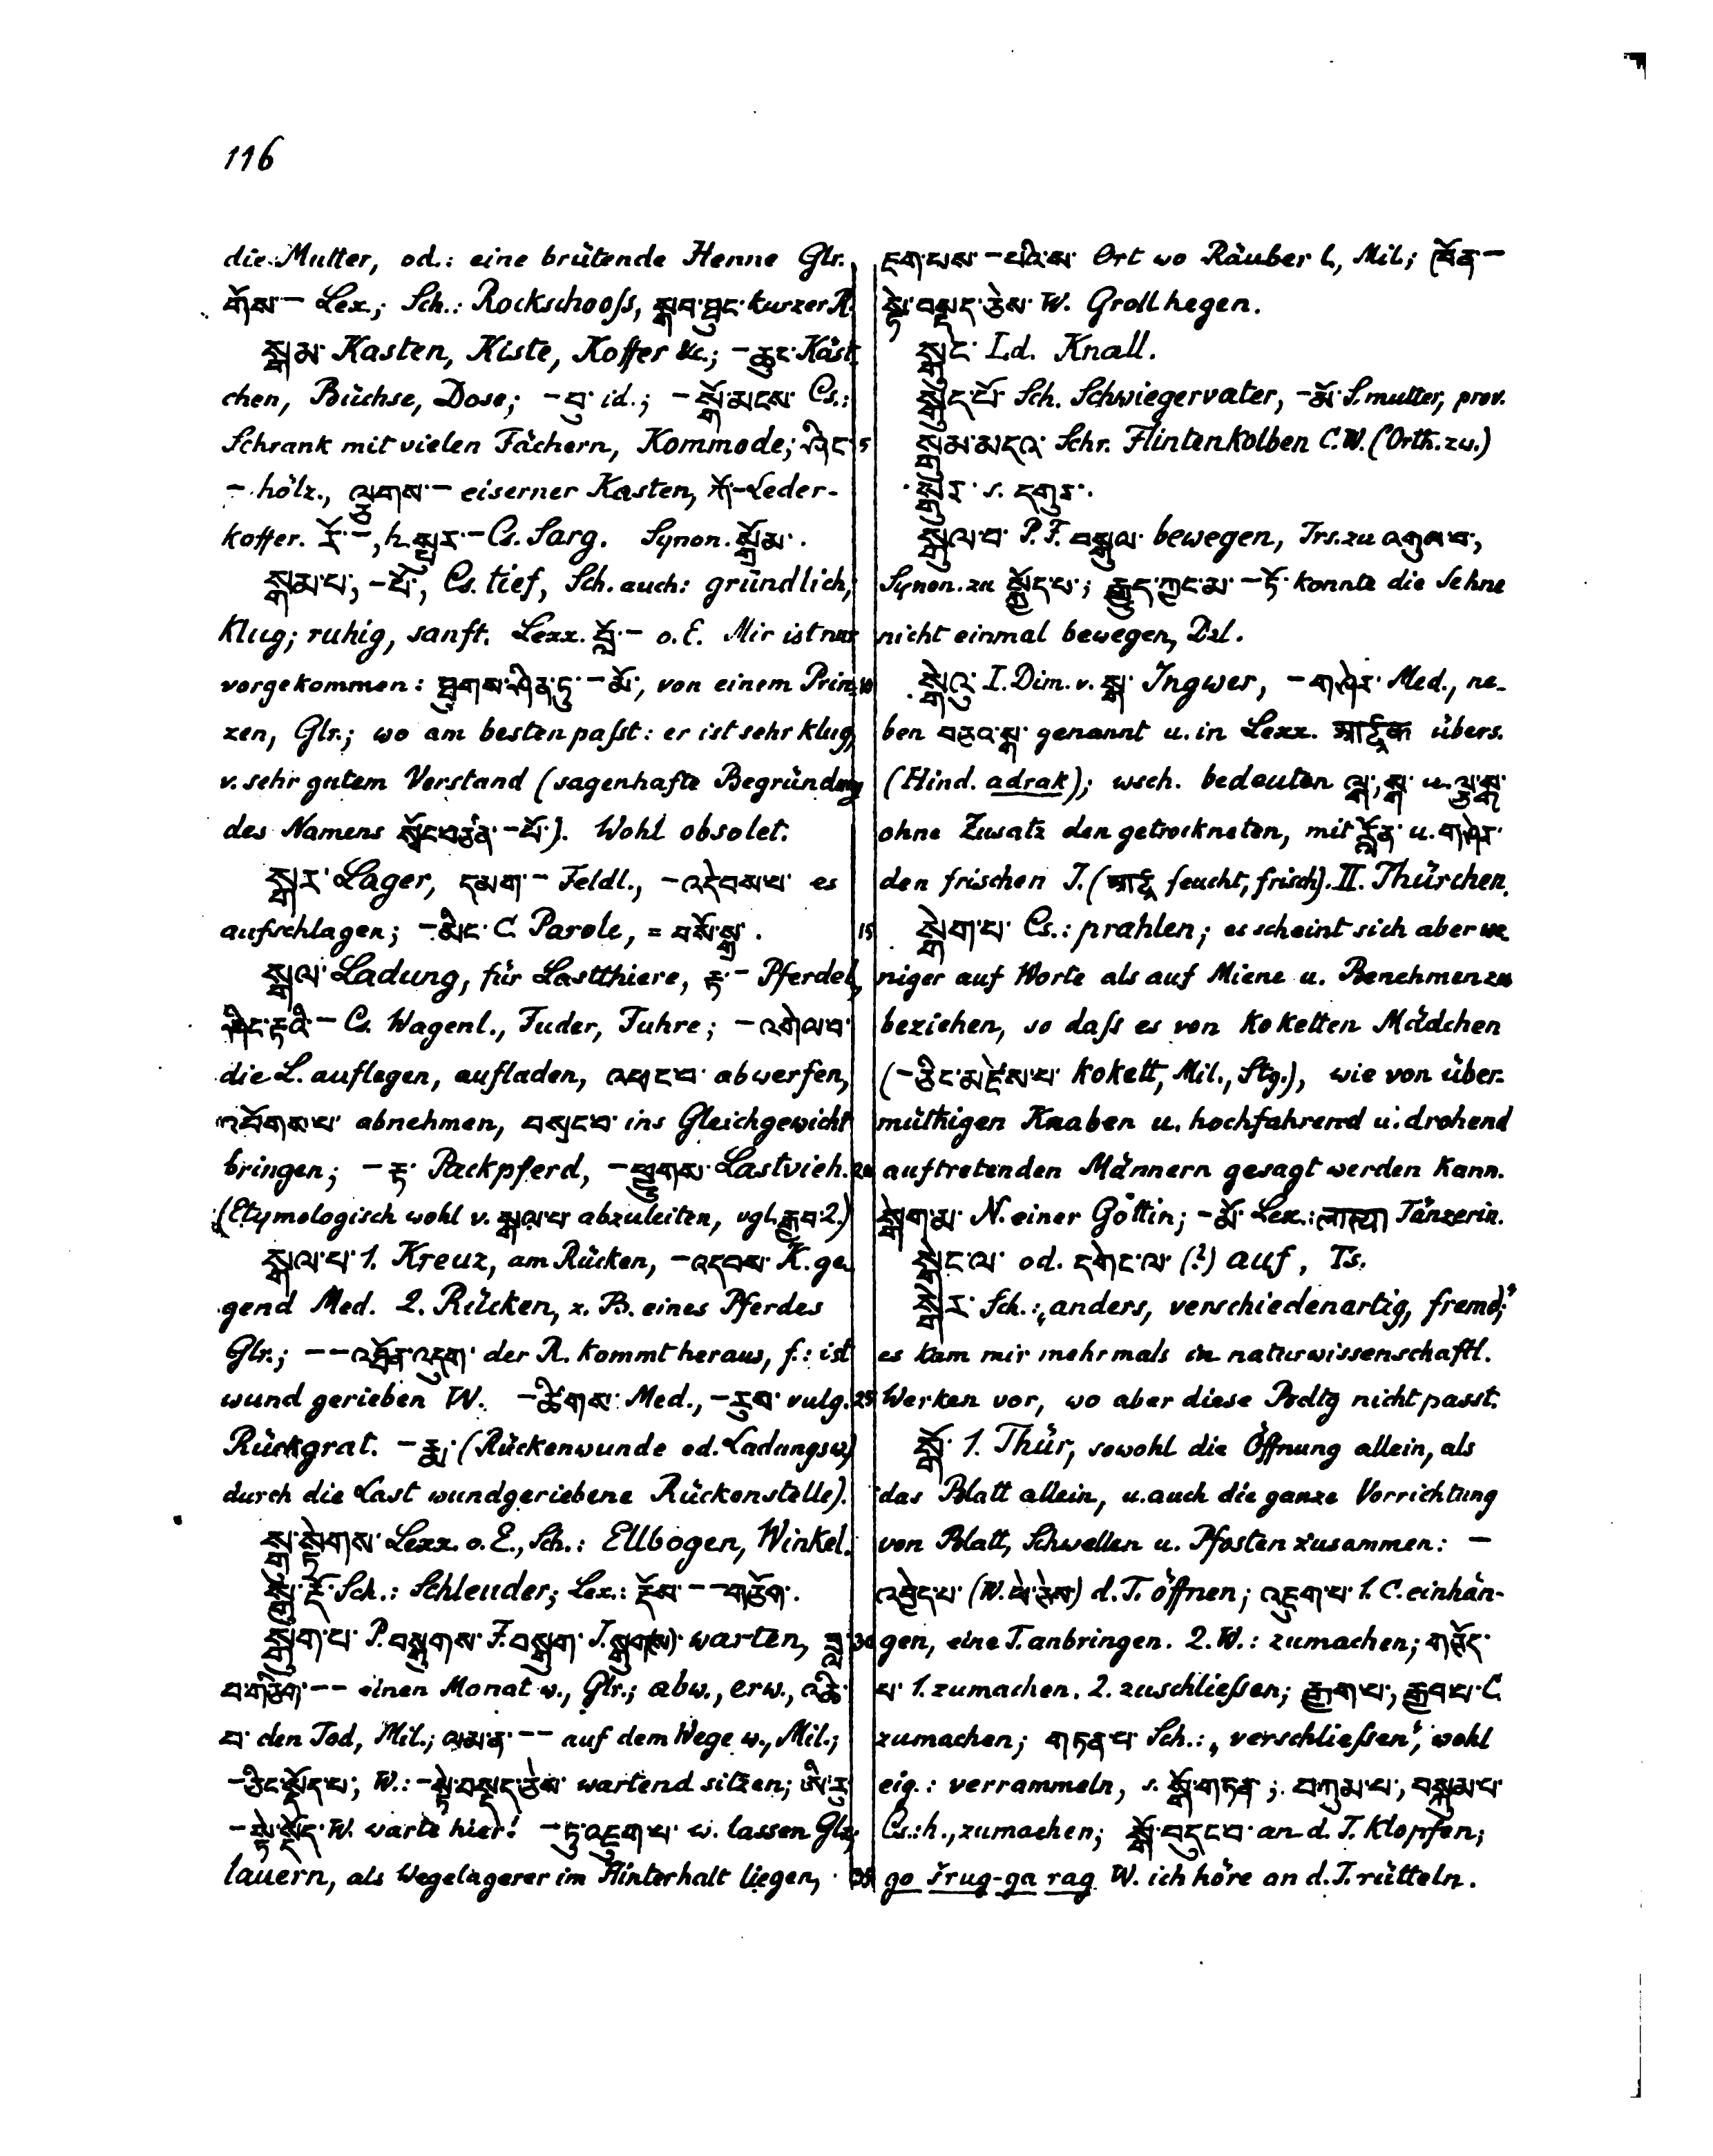 116
die Mutter, od.: eine brütende Henne Glr.
གོས་ – Lex.; Sch.: Rockschooſs, སྒབ་ཐུང་ kurzer R.
སྒམ་ Kasten, Kiste, Koffer &c.; – ཆུང་ Käst-
chen, Büchse, Dose; – བུ་ id.; – སྒོ་མངས་ Cs.:
Schrank mit vielen Fächern, Kommode; ཤིང་
– hölz., ལྕགས་ – eiserner Kasten, ཀོ་ – Leder-
koffer. རོ་ –, h. སྤུར་ – Cs. Sarg. Synon. སྒྲོམ་.
སྒམ་པ་, – པོ་, Cs. tief, Sch. auch: gründlich,
klug; ruhig, sanft. Lexx. བློ་ – o. E. Mir ist nur
vorgekommen: ཐུགས་ཤིན་ཏུ་ – མོ་, von einem Prin-
zen, Glr.; wo am besten paſst: er ist sehr klug,
v. sehr gutem Verstand (sagenhafte Begründung
des Namens སྲོང་བཙན་ – པོ་). Wohl obsolet.
སྒར་ Lager, དམག་ – Feldl., – འདེབས་པ་ es
aufschlagen; – མིང་ C. Parole, = བསོ་སྒྲ་.
སྒལ་ Ladung, für Lastthiere, རྟ་ – Pferdel.,
ཤིང་རྟའི་ – Cs. Wagenl., Fuder, Fuhre; – འགེལ་བ་
die L. auflegen, aufladen, འཕང་བ་ abwerfen,
འབོགས་པ་ abnehmen, བསྲང་བ་ ins Gleichgewicht
bringen; – རྟ་ Packpferd, – ཕྱུགས་ Lastvieh.
(Etymologisch wohl v. སྒལ་པ་ abzuleiten, vgl. རྒྱབ་ 2.)
སྒལ་པ་ 1. Kreuz, am Rücken, – འདབས་ K. ge-
gend Med. 2. Rücken, z. B. eines Pferdes
Glr.; – – འཐོན་འདུག་ der R. kommt heraus, f.: ist
wund gerieben W. – ཚིགས་ Med., – རུས་ vulg.
Rückgrat. – རྨ་ (Rückenwunde od. Ladungsw.)
durch die Last wundgeriebene Rückenstelle).
སྒ་སྟེགས་ Lexx. o. E., Sch.: Ellbogen, Winkel.
Sch.: Schleuder; Lex.: རྡོས་ – – གཅོག་.
སྒུག་པ་ P. བསྒུགས་ F. བསྒུག་ J. སྒུག(ས) warten, ཟླ་
བ་གཅིག་ – – einen Monat w., Glr.; abw., erw., འཆི་
བ་ den Tod, Mil.; ལམ་ན་ – – auf dem Wege w., Mil.;
– ཅིང་སྡོད་པ་; W.: – སྟེ་བསྡད་ཅེས་ wartend sitzen; ཨི་རུ་
– སྟེ་སྡོད་ W. warte hier! – ཏུ་འཇུག་པ་ w. lassen Glr.;
lauern, als Wegelagerer im Hinterhalt liegen,
ཇག་པས་ – པའི་ས་ Ort wo Räuber l., Mil.; ཁོན་ –
སྟེ་བསྡད་ཅེས་ W. Groll hegen.
སྒུང་ Ld. Knall.
སྒུད་པོ་ Sch. Schwiegervater, – མོ་ S. mutter, prov.
སྒུམ་མདའ་ Schr. Flintenkolben C. W. (Orth. zw.)
སྒུར་ s. དགུར་.
སྒུལ་བ་ P. F. བསྒུལ་ bewegen, Trs. zu འགུལ་བ་,
Synon. zu སྐྱོད་པ་; རྒྱུད་ཀྱང་མ་ – ཏོ་ konnte die Sehne
nicht einmal bewegen, Dzl.
སྒེའུ་ I. Dim. v. སྒ་ Ingwer, – གཤེར་ Med., ne-
ben བཅའ་སྒ་ genannt u. in Lexx. आर्द्रक übers.
(Hind. adrak); wsch. bedeuten ལྒ་, སྒ་ u. ལྕ་སྒ་
ohne Zusatz den getrockneten, mit རློན་ u. གཤེར་
den frischen J. (आर्द्र feucht, frisch). II. Thürchen.
སྒེག་པ་ Cs.: prahlen; es scheint sich aber we-
niger auf Worte als auf Miene u. Benehmen zu
beziehen, so daſs es von koketten Mädchen
(– ཅིང་མཛེས་པ་ kokett, Mil., Stg.), wie von über-
müthigen Knaben u. hochfahrend u. drohend
auftretenden Männern gesagt werden kann.
སྒེག་མ་ N. einer Göttin; – མོ་ Lex.: लास्या Tänzerin.
སྒེང་ལ་ od. དགེང་ལ་ (?) auf, Ts.
སྒེར་ Sch.: „anders, verschiedenartig, fremd;“
es kam mir mehrmals in naturwissenschaftl.
Werken vor, wo aber diese Bedtg nicht passt.
སྒོ་ 1. Thür, sowohl die Öffnung allein, als
das Blatt allein, u. auch die ganze Vorrichtung
von Blatt, Schwellen u. Pfosten zusammen: –
འབྱེད་པ་ (W. ཕེ་ཅེས་) d. T. öffnen; འཇུག་པ་ 1. C. einhän-
gen, eine T. anbringen. 2. W.: zumachen; གཅོད་
པ་ 1. zumachen. 2. zuschlieſsen; རྒྱག་པ་, རྒྱབ་པ་ C
zumachen; གཏན་པ་ Sch.: „verschlieſsen“, wohl
eig.: verrammeln, s. སྒོ་གཏན་; བཀུམ་པ་, བསྐུམ་པ་
Cs.: h., zumachen; སྒོ་བརྡུང་བ་ an d. T. klopfen;
go šrug-ga rag W. ich höre an d. T. rütteln.